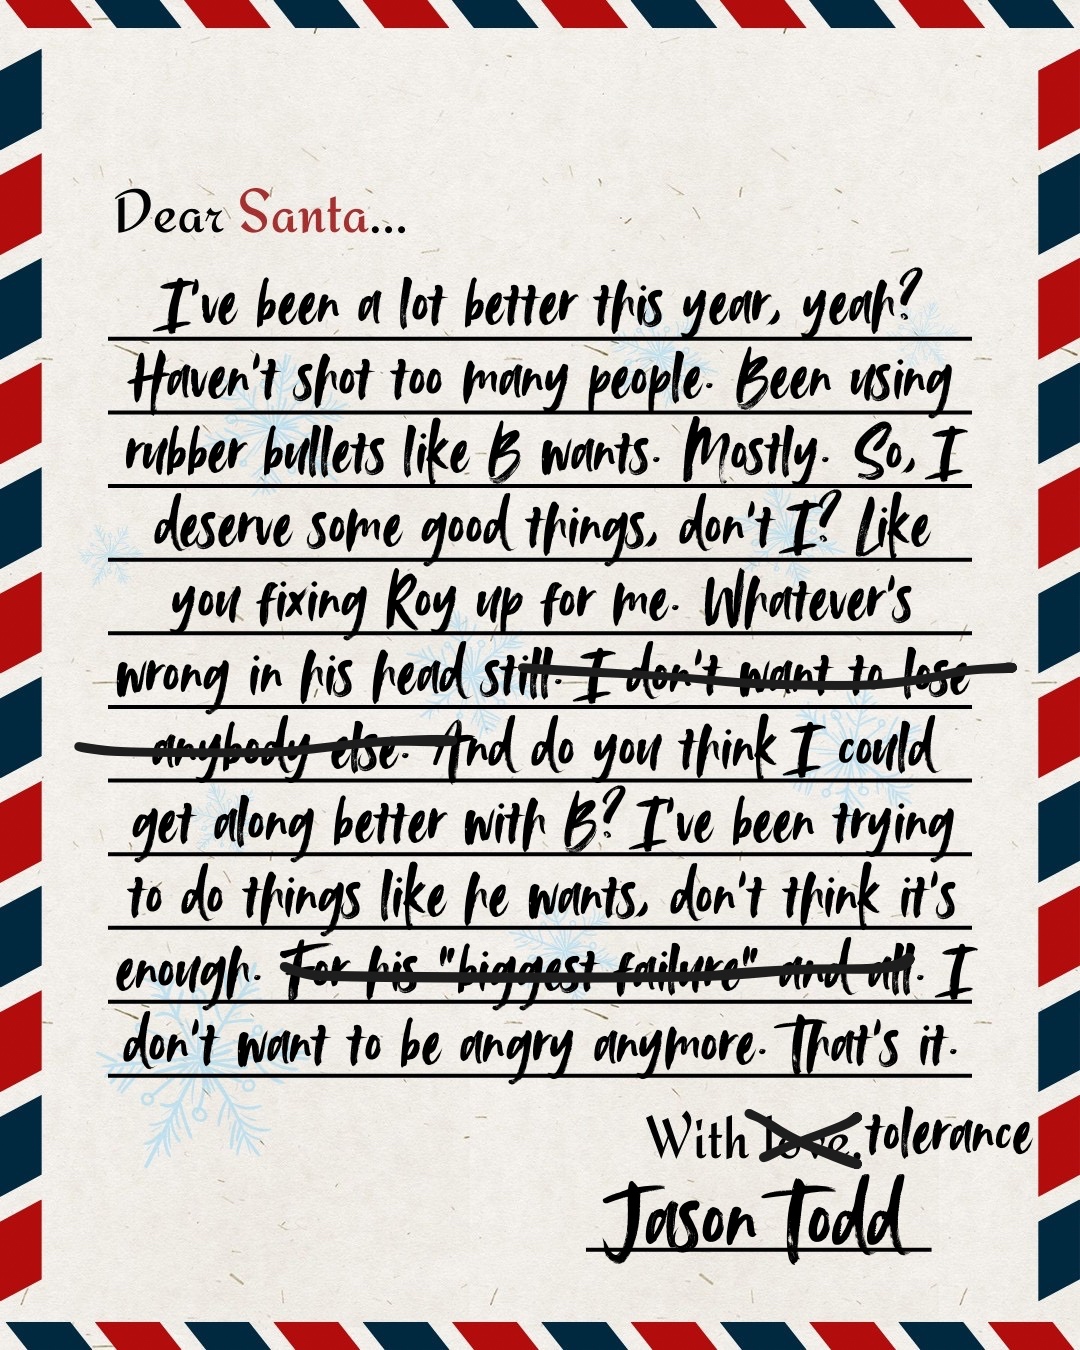 Dear Santa...
I've been a lot better this year, yeah?
Haven't shot too many people. Been using
rubber bullets like B wants. Mostly. So, I
deserve some good things, don't I? Like
you fixing Roy up for me. Whatever's
wrong in his head still. I don't want to lose
anybody else. And do you think I could
get along better with B? I've been trying
to do things like he wants, don't think it's
enough. For his "biggest failure" and all. I
don't want to be angry anymore. That's it.
With love, tolerance
Jason Todd